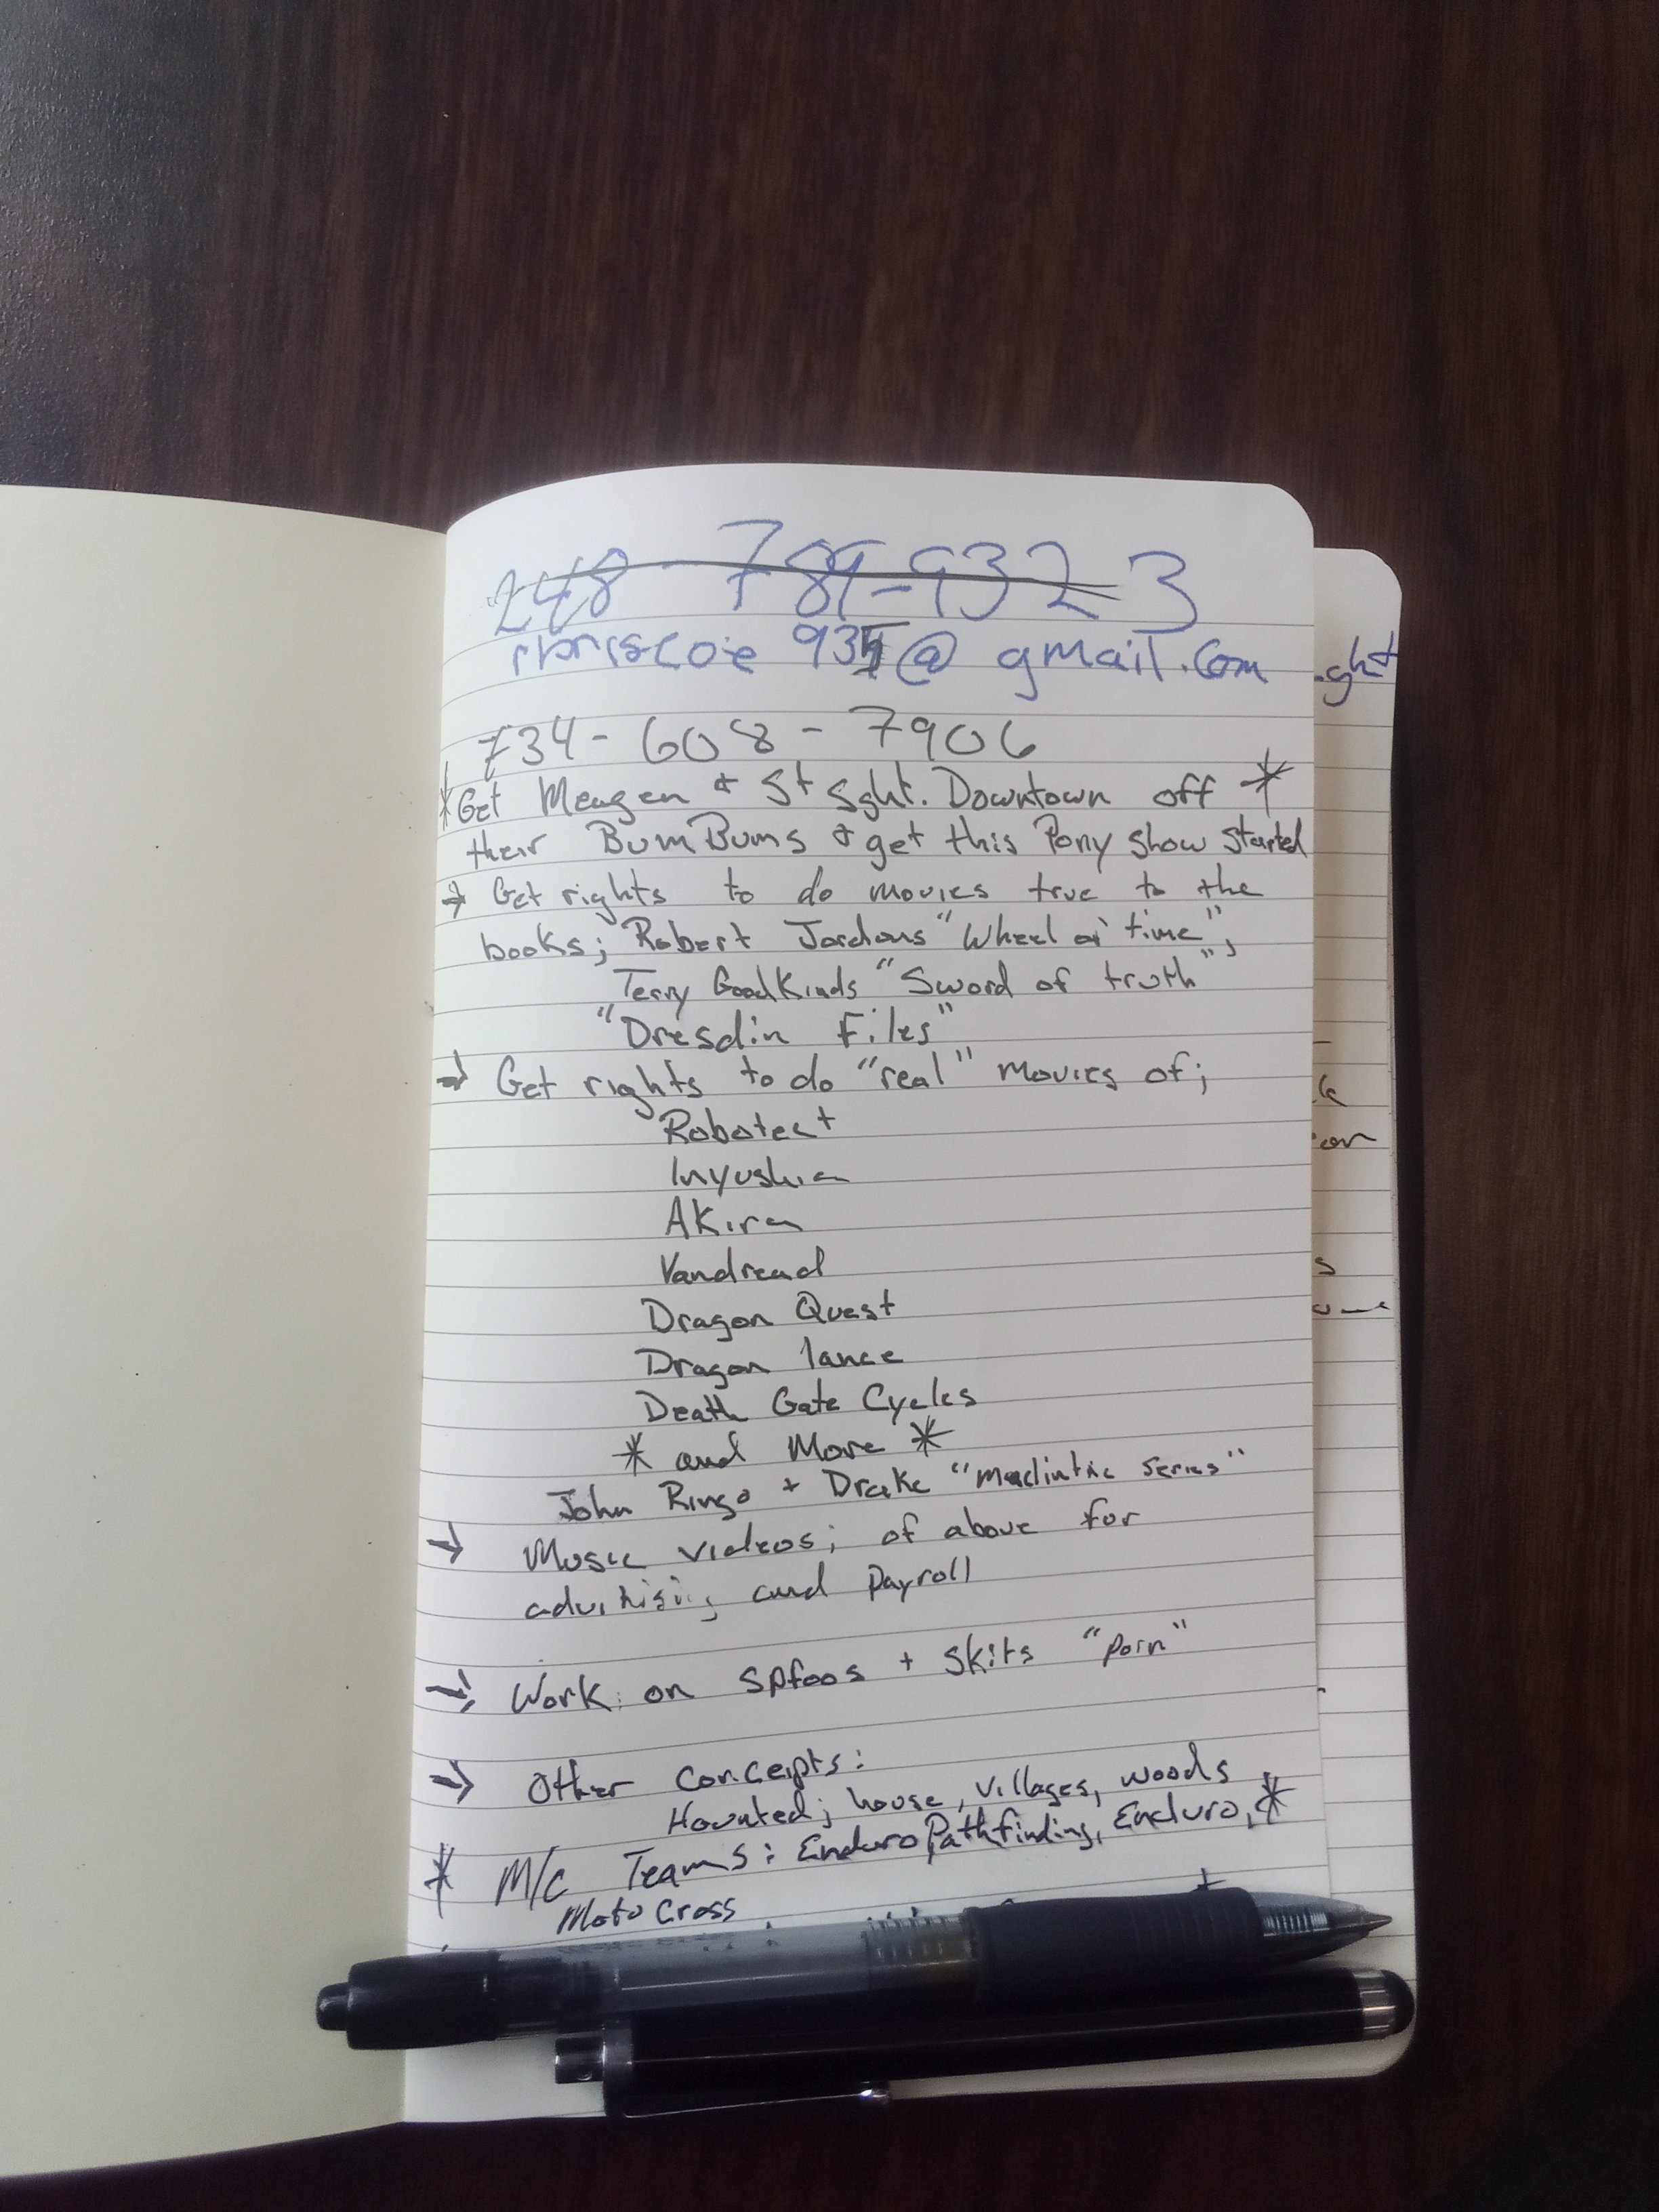 248-789-9323
rbriscoe 935@gmail.com
734-608-7906
*Get Meagen & St Sght. Downtown off *
their BumBums & get this Pony show started
→ Get rights to do movies true to the
books; Robert Jordans "Wheel of time",
Terry GoodKinds "Sword of truth"
"Dresdin Files"
→ Get rights to do "real" movies of;
Robotect
Inyushia
Akira
Vandread
Dragon Quest
Dragon lance
Death Gate Cycles
* and More *
John Ringo + Drake "series"
→ Music videos; of above for
and Payroll
→ Work on spfoos + skits "porn"
→ Other Concepts:
Haunted; house, villages, woods
* M/C Teams: Enduro Pathfinding, Enduro, *
Moto Cross
ght